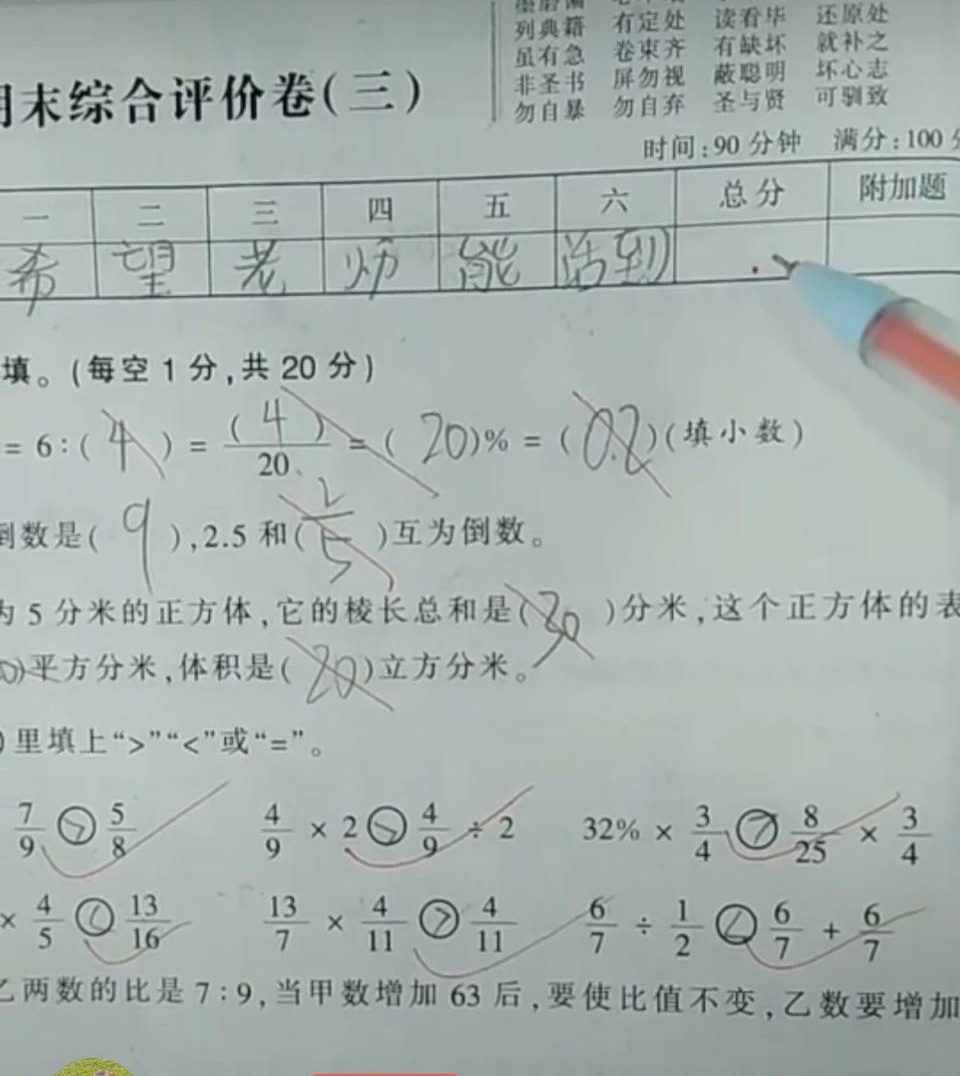 列典籍 有定处 读看毕 还原处
虽有急 卷束齐 有缺坏 就补之
非圣书 屏勿视 蔽聪明 坏心志
勿自暴 勿自弃 圣与贤 可驯致
期末综合评价卷(三)
时间:90分钟 满分:100分
一 二 三 四 五 六 总分 附加题
希 望 老 师 能 活到
填。(每空1分,共20分)
= 6:(4) = (4)/20 = (20)% = (0.2)(填小数)
倒数是(9),2.5和(2/5)互为倒数。
为5分米的正方体,它的棱长总和是(30)分米,这个正方体的表
0)平方分米,体积是(20)立方分米。
)里填上“>”“<”或“=”。
7/9 > 5/8 4/9 × 2 > 4/9 ÷ 2 32% × 3/4 > 8/25 × 3/4
× 4/5 < 13/16 13/7 × 4/11 > 4/11 6/7 ÷ 1/2 < 6/7 + 6/7
乙两数的比是7:9,当甲数增加63后,要使比值不变,乙数要增加